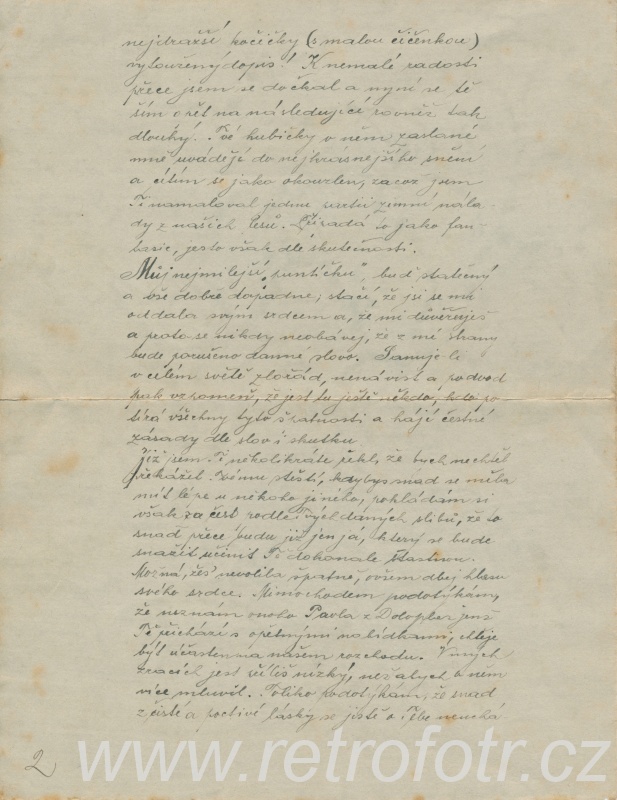 nejdražší kočičky (s malou čičenkou)
vytoužený dopis! K nemalé radosti
přece jsem se dočkal a nyní se tě
ším opět na následující rovněž tak
dlouhý! Tvé hubičky v něm zaslané
mně uvádějí do nejkrásnějšího snění
a cítím se jako okouzlen, začož jsem
Ti namaloval jednu partii zimní nála-
dy z našich lesů. Vypadá to jako fan-
tasie, jesto však dle skutečnosti.
Můj nejmilejší „puntíčku", buď statečný
a vše dobře dopadne; stačí, že jsi se mi
oddala svým srdcem a, že mi důvěřuješ
a proto se nikdy neobávej, že z mé strany
bude porušeno danné slovo. Panuje li
v celém světě zlořád, nenávist a podvod
pak vzpomeň, že jest tu ještě někdo, kdo po
tírá všechny tyto špatnosti a hájí čestné
zásady dle slov i skutku.
Již jsem Ti několikráte řekl, že bych nechtěl
překážet Tvému štěstí, kdybys snad se měla
mít lépe u někoho jiného, pokládám si
však za čest podle Tvých daných slibů, že to
snad přece budu již jen já, který se bude
snažit učinit Tě dokonale šťastnou.
Možná, žes' nevolila špatně, ovšem dbej hlasu
svého srdce. Mimochodem podotýkám,
že neznám onoho Pavla z Dolopber jenž
Tě přichází s opětnými nabídkami, chtěje
být účasten na našem rozchodu. V mých
zracích jest příliš nízký, než abych o něm
více mluvil. Toliko podotýkám, že snad
z čisté a poctivé lásky se jistě o Tebe neuchá-
2
www.retrofotr.cz